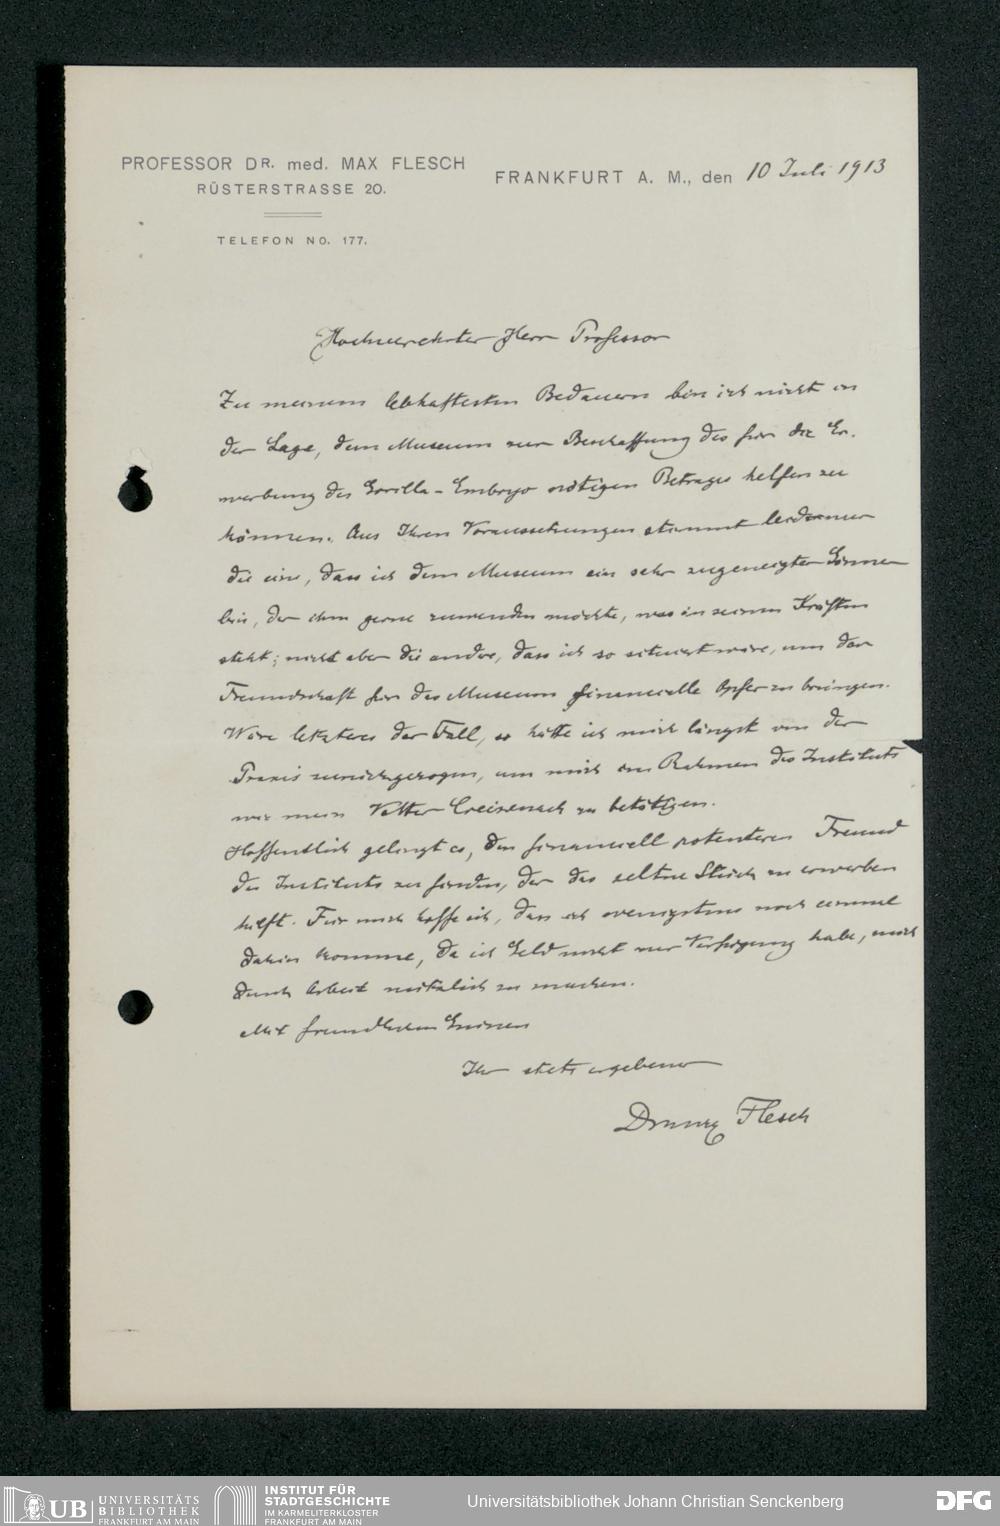 PROFESSOR DR. med. MAX FLESCH
RÜSTERSTRASSE 20.
TELEFON NO. 177.
FRANKFURT A. M., den 10 Juli 1913
Hochverehrter Herr Professor
Zu meinem lebhaftesten Bedauern bin ich nicht in
der Lage, dem Museum zur Beschaffung des für die Er-
werbung des Gorilla-Embryo nötigen Betrages helfen zu
können. Aus Ihren Voraussetzungen stimmt leider nur
die eine, dass ich dem Museum ein sehr zugeneigter Gönner
bin, der ihm gerne zuwenden möchte, was in seinen Kräften
steht; nicht aber die andre, dass ich so situiert wäre, um der
Freundschaft für das Museum financielle Opfer zu bringen.
Wäre letzteres der Fall, so hätte ich mich längst von der
Praxis zurückgezogen, um mich im Rahmen des Instituts
wie mein Vetter Creizenach zu betätigen.
Hoffentlich gelingt es, den financiell potenteren Freund
des Instituts zu finden, der das seltne Stück zu erwerben
hilft. Für mich hoffe ich, dass ich wenigstens noch einmal
dahin komme, da ich Geld nicht zur Verfügung habe, mich
durch Arbeit nützlich zu machen.
Mit freundlichen Grüssen
Ihr stets ergebener
Dr Max Flesch
UB UNIVERSITÄTS
BIBLIOTHEK
FRANKFURT AM MAIN
INSTITUT FÜR
STADTGESCHICHTE
IM KARMELITERKLOSTER
FRANKFURT AM MAIN
Universitätsbibliothek Johann Christian Senckenberg
DFG